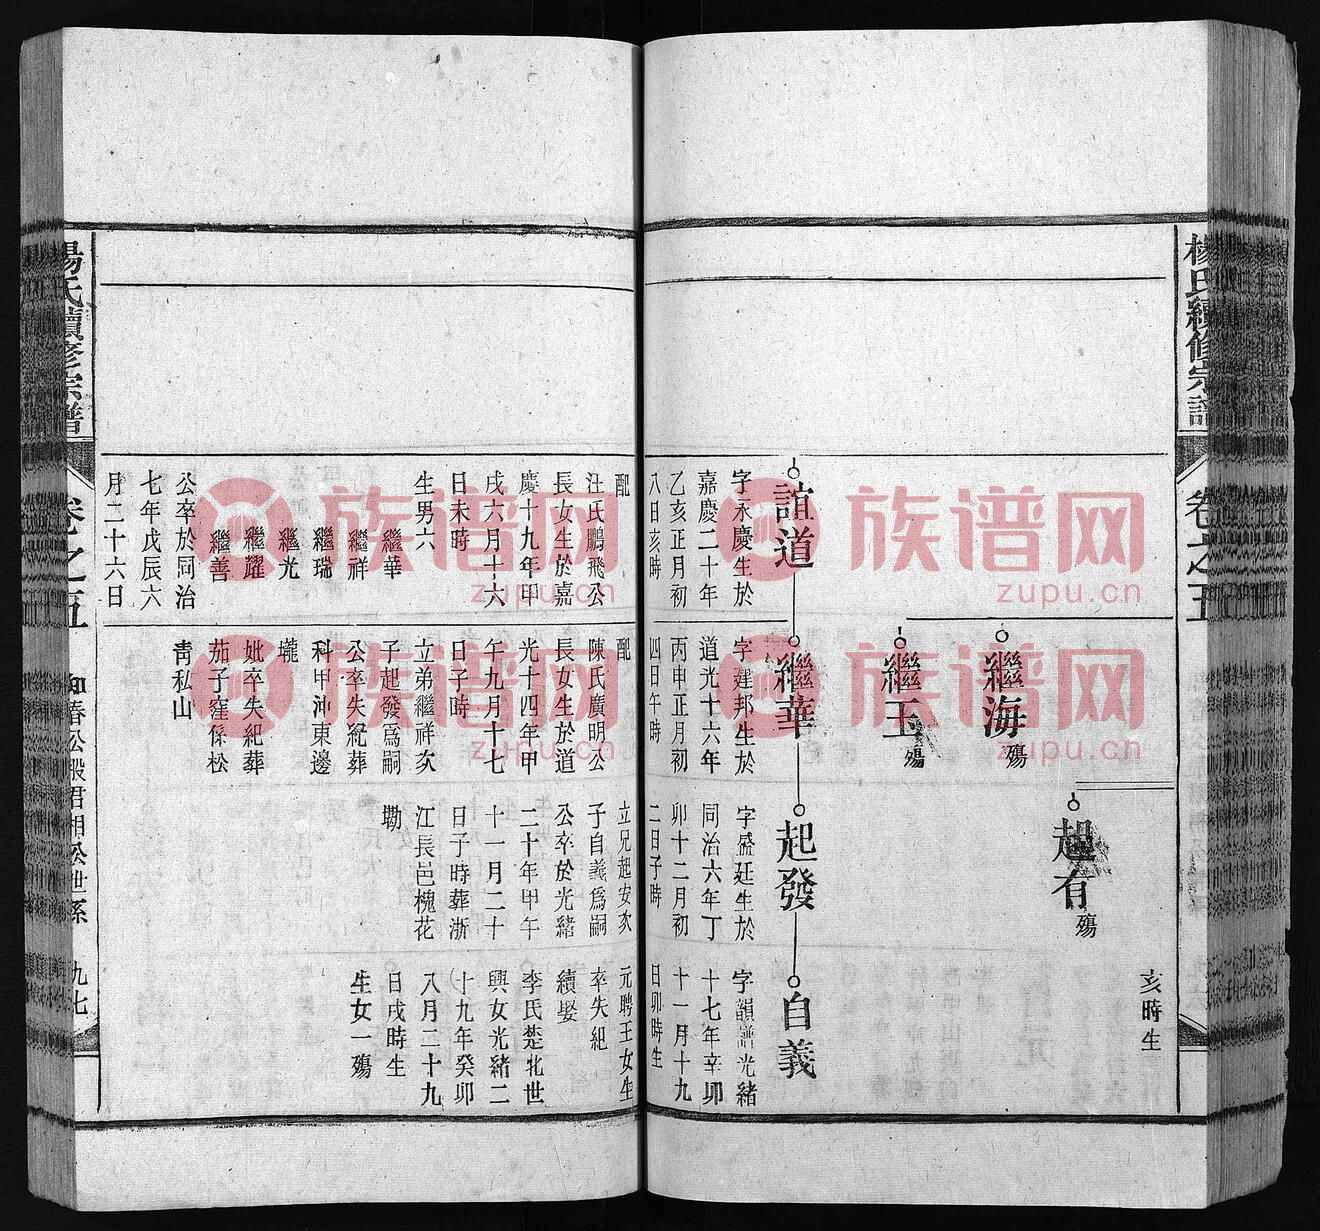 楊氏續修宗譜
卷之五
亥時生
起有殤
繼海殤
繼玉殤
誼道
字永慶生於
嘉慶二十年
乙亥正月初
八日亥時
配
汪氏鵬飛公
長女生於嘉
慶十九年甲
戌六月十六
日未時
生男六
繼華
繼祥
繼瑞
繼光
繼耀
繼善
公卒於同治
七年戊辰六
月二十六日
繼華
字建邦生於
道光十六年
丙申正月初
四日午時
配
陳氏廣明公
長女生於道
光十四年甲
午九月十七
日子時
立弟繼祥次
子起發爲嗣
公卒失紀葬
科甲沖東邊
壠
妣卒失紀葬
茄子窪係松
青私山
起發
字盛廷生於
同治六年丁
卯十二月初
二日子時
立兄起安次
子自義爲嗣
公卒於光緒
二十年甲午
十一月二十
日子時葬浙
江長邑槐花
塢
自義
字韻譜光緒
十七年辛卯
十一月十九
日卯時生
元聘王女生
卒失紀
續娶
李氏楚北世
興女光緒二
十九年癸卯
八月二十九
日戌時生
生女一殤
楊氏續修宗譜
卷之五
知春公股君相公世系
九七
族谱网
zupu.cn
族谱网
zupu.cn
族谱网
zupu.cn
族谱网
zupu.cn